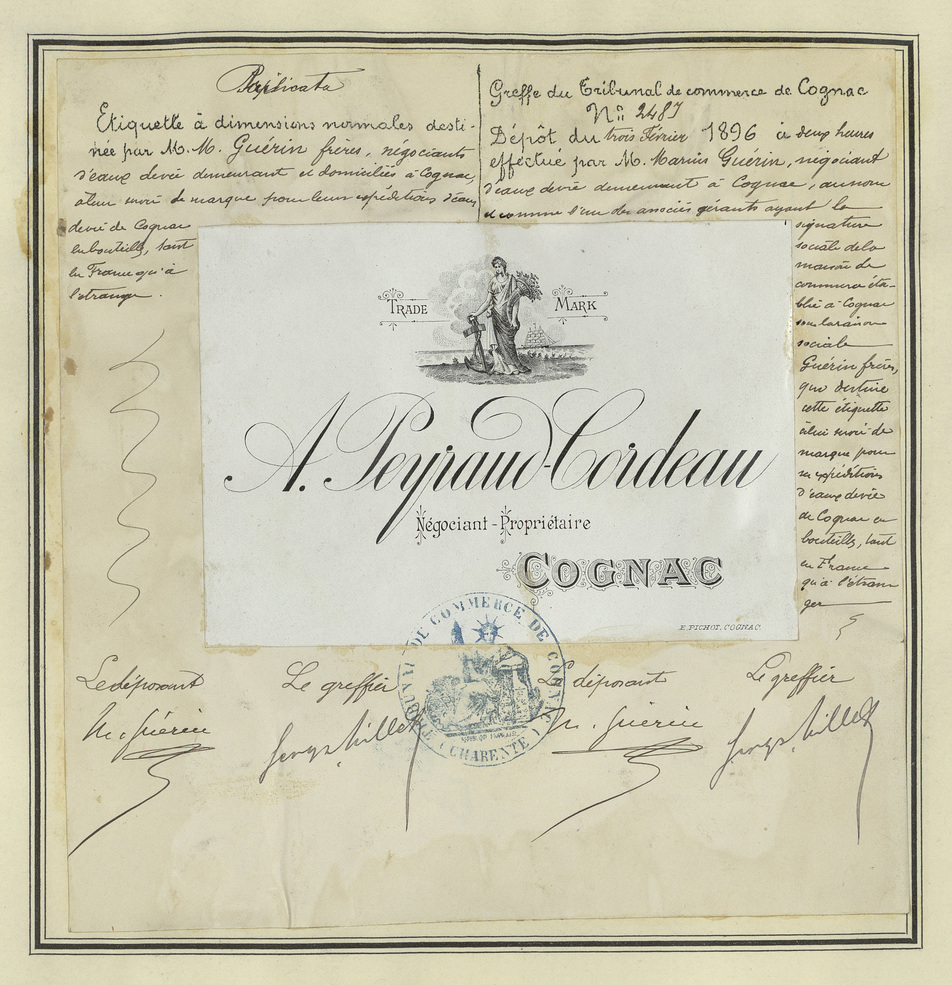 Duplicata
Etiquette à dimensions normales desti-
née par M.M. Guérin frères, négociants
d'eaux de vie demeurant et domiciliés à Cognac,
à leur envoi de marque pour leurs expéditions d'eaux
de vie de Cognac
en bouteilles, tant
en France qu'à
l'étranger.
Greffe du Tribunal de commerce de Cognac
N° 2487
Dépôt du trois Février 1896 à deux heures
effectué par M. Marius Guérin, négociant
d'eaux de vie demeurant à Cognac, au nom
et comme l'un des associés gérants ayant la
signature
sociale de la
maison de
commerce éta-
blie à Cognac
sous la raison
sociale
Guérin frères,
qui destine
cette étiquette
à leur envoi de
marque pour
ses expéditions
d'eaux de vie
de Cognac en
bouteilles, tant
en France
qu'à l'étran
ger
TRADE MARK
A. Peyraud-Cordeau
Négociant-Propriétaire
COGNAC
E. PICHOT, COGNAC.
TRIBUNAL DE COMMERCE DE COGNAC
(CHARENTE)
Le déposant Le greffier Le déposant Le greffier
M. Guérin M. Guérin